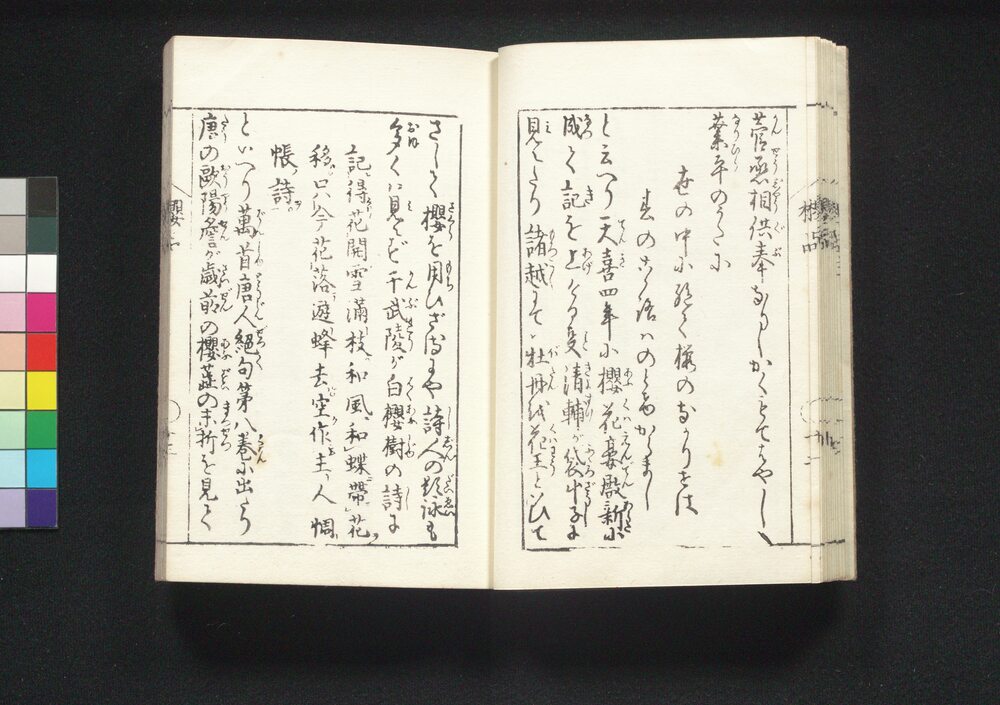 菅丞相供奉ありしかくもてはやし
業平のうたに
世の中に絶て桜のなかりせは
春のこゝろはのとけからまし
と云へり天喜四年に櫻花宴殿新に
成て記を上らる清輔が袋草子に
見へたり諸越にて牡丹を花王といひて
さして櫻を用ひざるにや詩人の題詠も
多くは見へず于武陵が白櫻樹の詩に
記得花開雪滿枝和風和蝶帶花
移只今花落遊蜂去空作主人惆
悵詩
といへり萬首唐人絕句第八巻に出たり
唐の歐陽詹が歲前の櫻
を見て